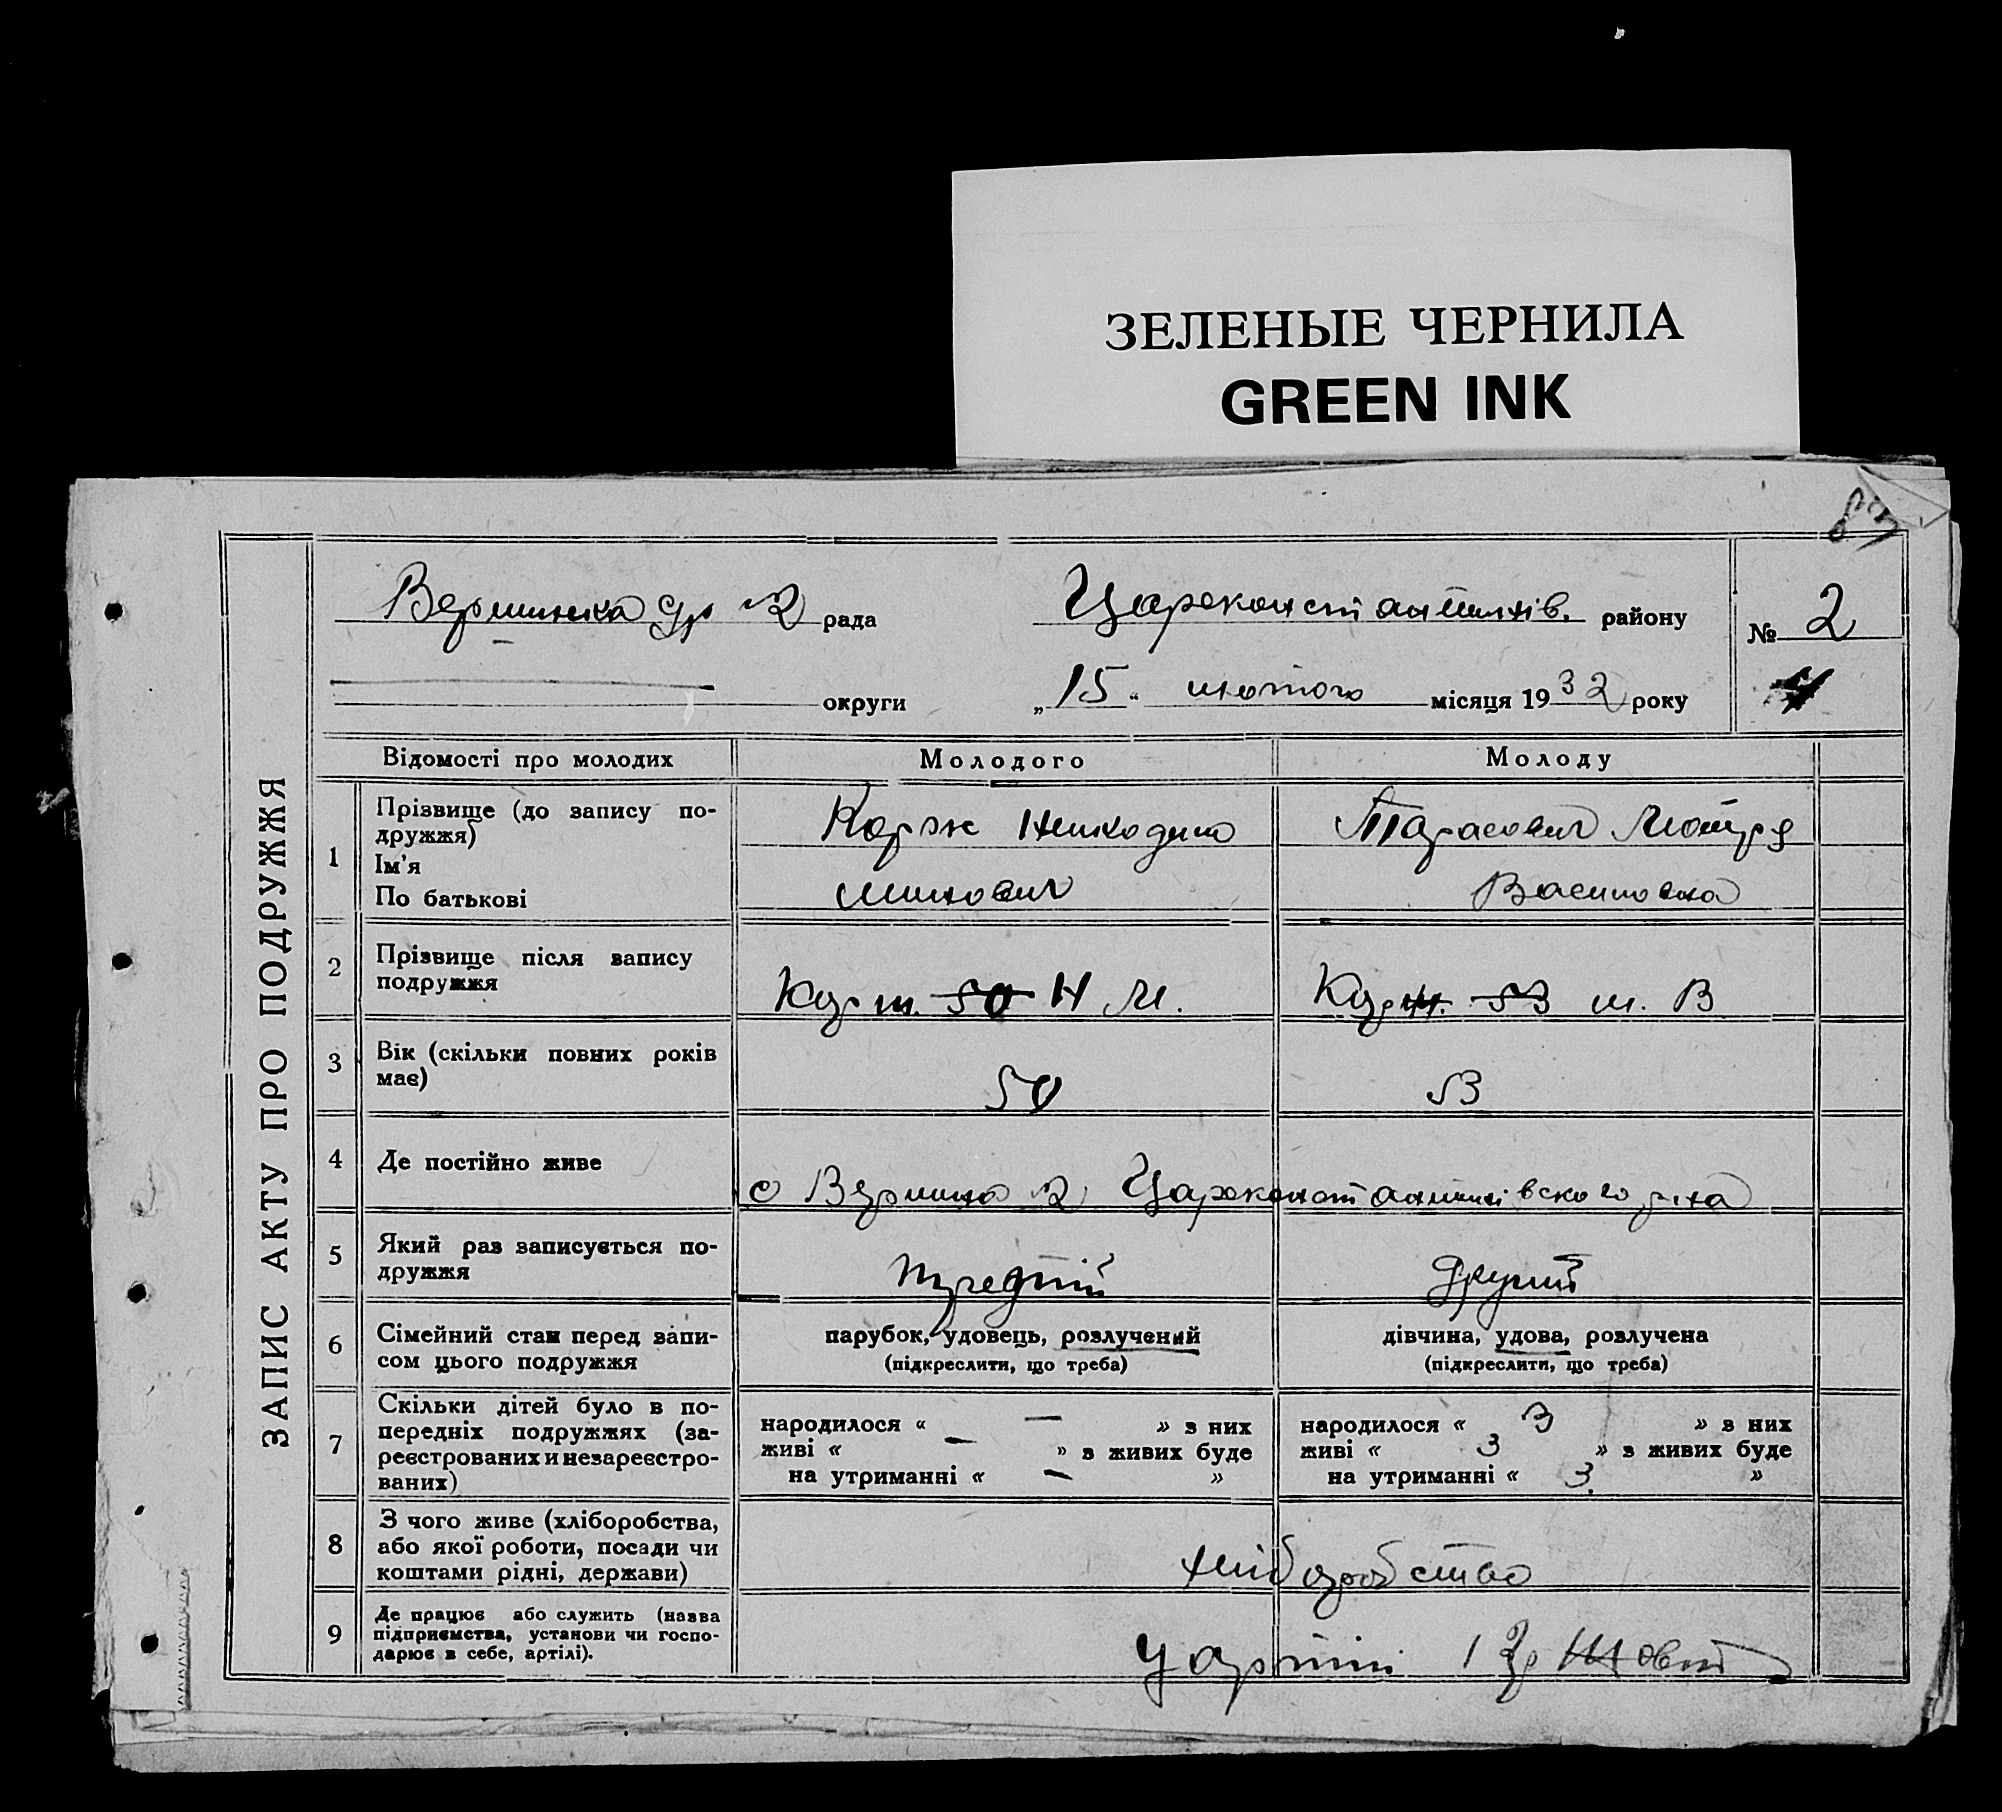 ЗЕЛЕНЫЕ ЧЕРНИЛА
GREEN INK
ЗАПИС АКТУ ПРО ПОДРУЖЖЯ
Вершинка др №2 рада
Цареконстантинів. району
№ 2
округи
„15“ лютого місяця 1932 року
4
Відомості про молодих
Молодого
Молоду
1
Прізвище (до запису подружжя)
Ім'я
По батькові
Корж Никодим
Минович
Тарасович Мотря
Василовна
2
Прізвище після запису подружжя
Корж. 50 Н М.
Корж. 53 М. В
3
Вік (скільки повних років має)
50
53
4
Де постійно живе
с Вершина 2 Цареконстантинівського р-на
5
Який раз записується подружжя
третій
другий
6
Сімейний стан перед записом цього подружжя
парубок, удовець, розлучений
(підкреслити, що треба)
дівчина, удова, розлучена
(підкреслити, що треба)
7
Скільки дітей було в попередніх подружжях (зареєстрованих и незареєстрованих)
народилося « — » з них
живі « — » з живих буде
на утриманні « — »
народилося « 3 » з них
живі « 3 » з живих буде
на утриманні « 3. »
8
З чого живе (хліборобства, або якої роботи, посади чи коштами рідні, держави)
хліборобство
9
Де працює або служить (назва підприємства, установи чи господарює в себе, артілі).
У артілі